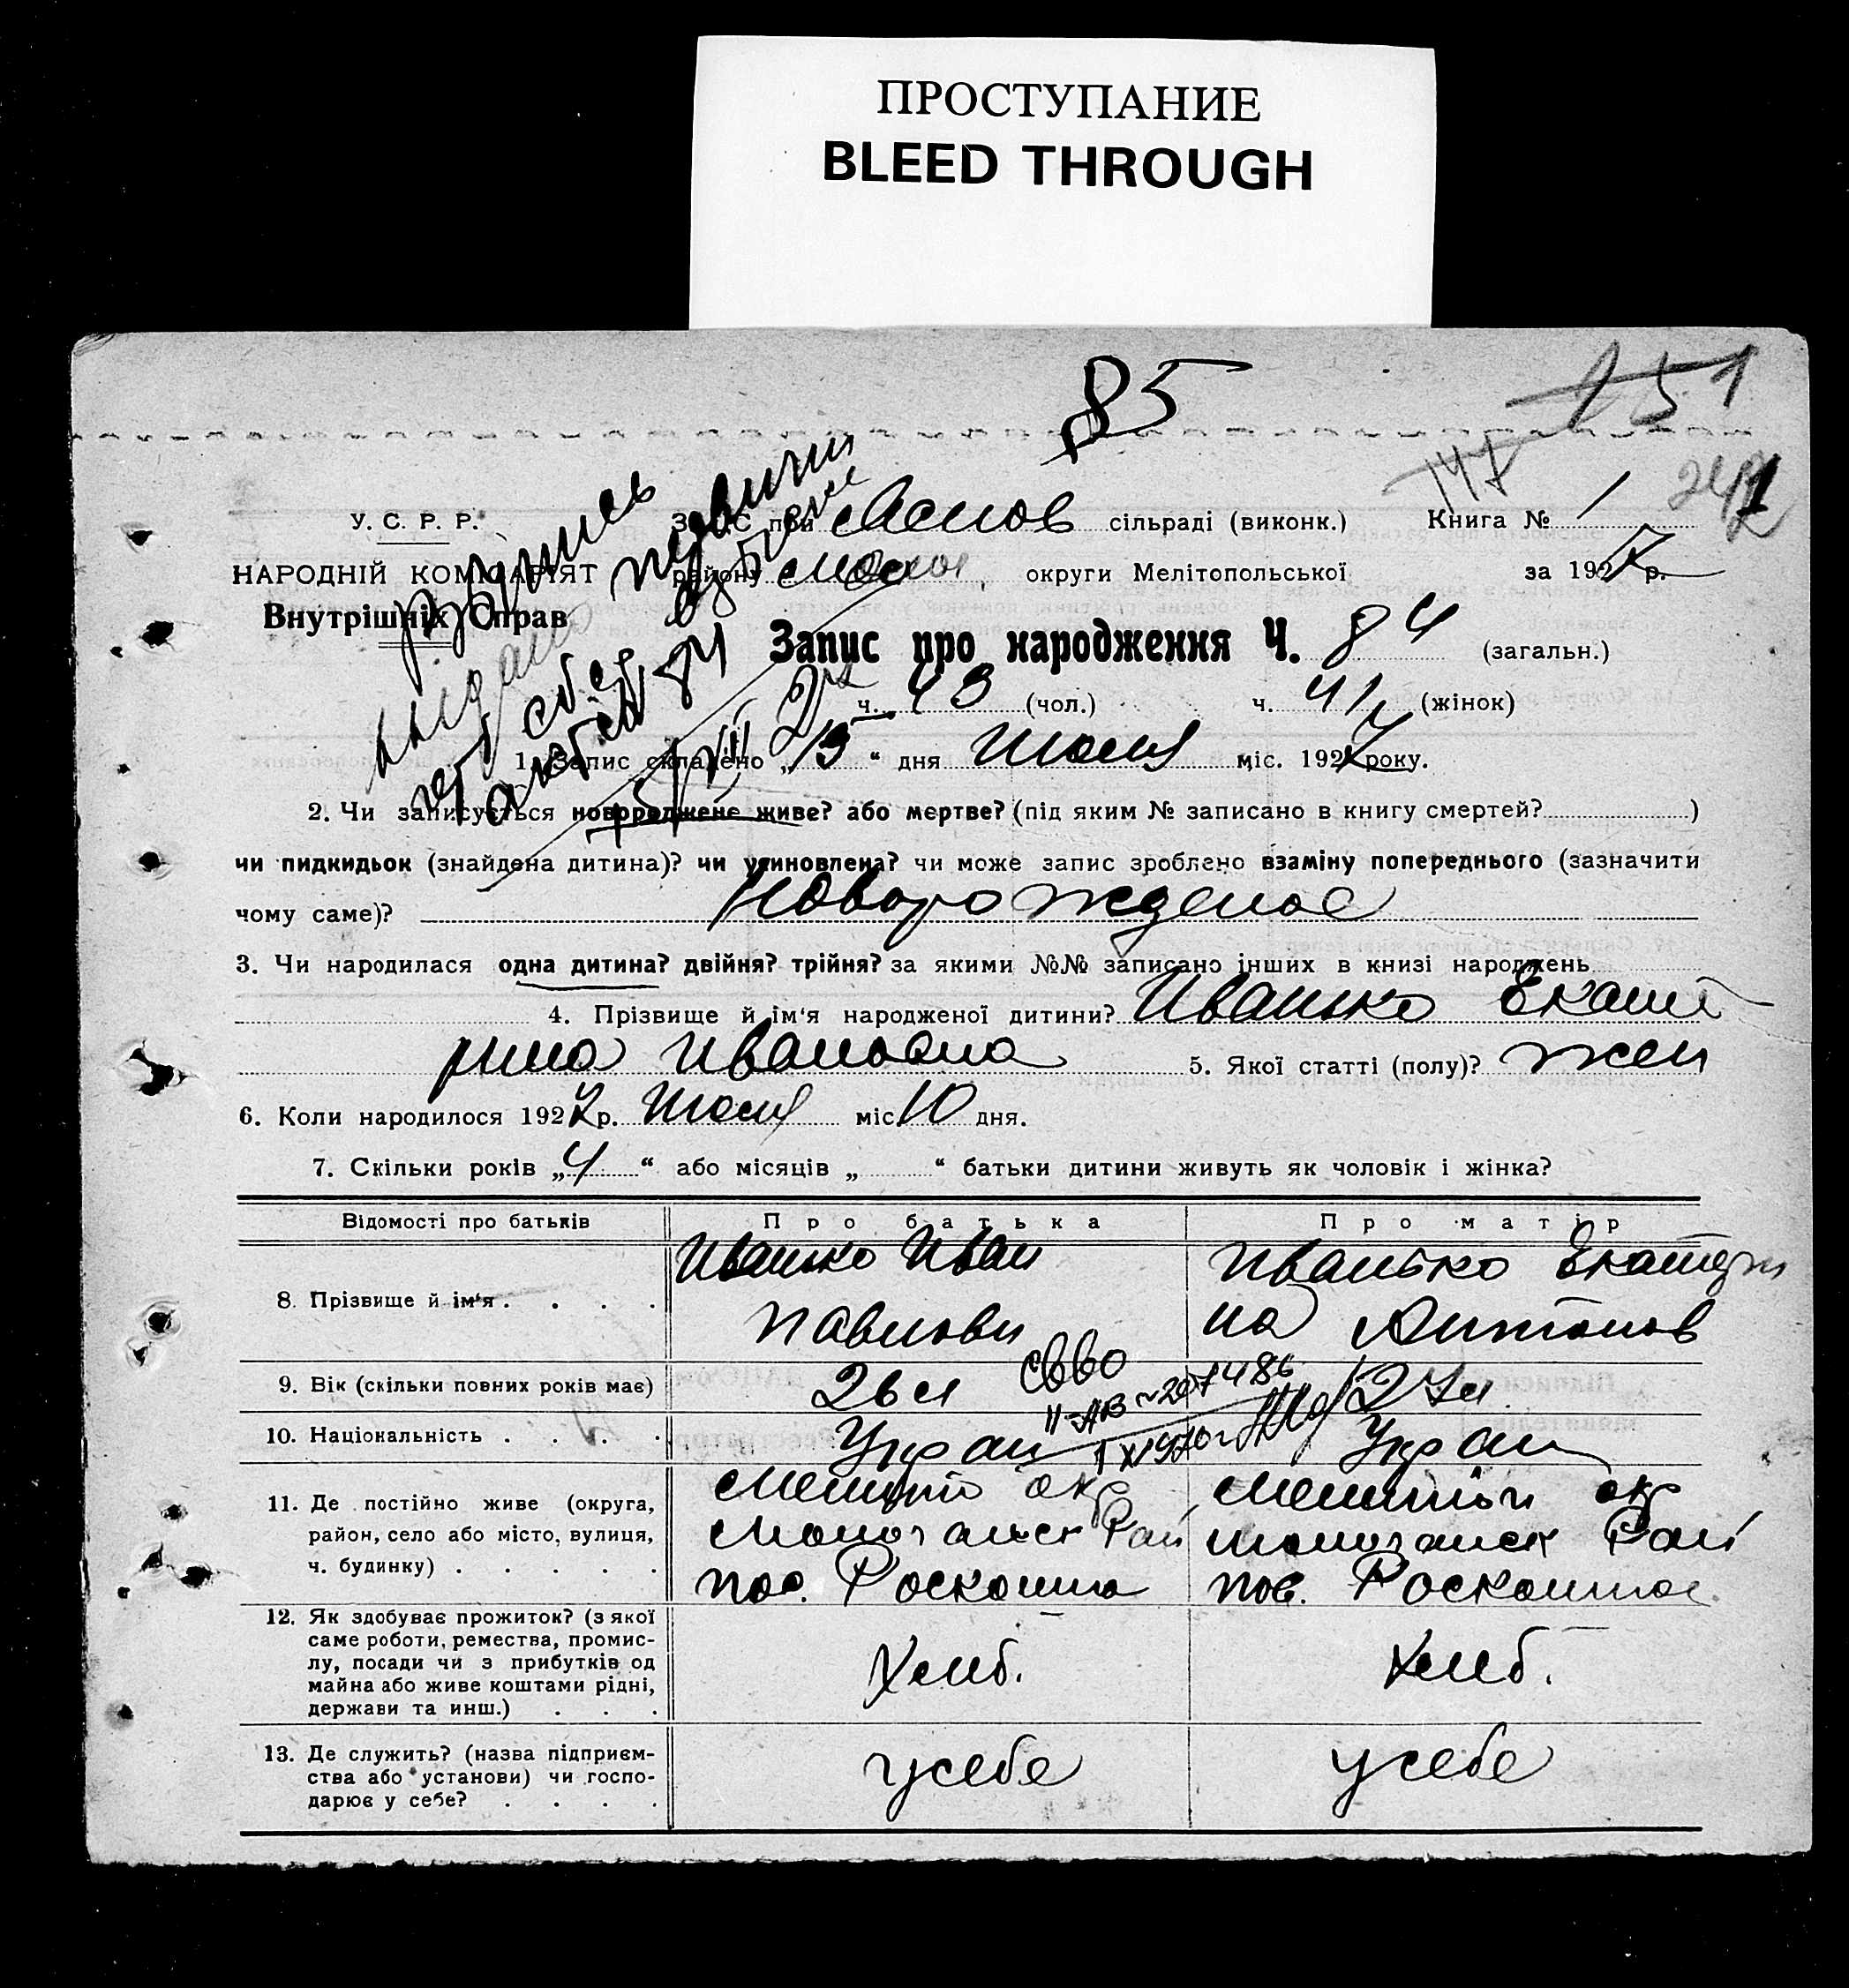 ПРОСТУПАНИЕ
BLEED THROUGH
85
151
147
242
У. С. Р. Р.
ЗАГС при сільраді (виконк.) Книга № 1
НАРОДНІЙ КОМІСАРІЯТ
району округи Мелітопольської за 1927 р.
Внутрішніх Справ
Запис про народження Ч. 84 (загальн.)
ч. 43 (чол.) ч. 41 (жінок)
1. Запис складено „15“ дня Июля міс. 1927 року.
2. Чи записується новороджене живе? або мертве? (під яким № записано в книгу смертей? )
чи пидкидьок (знайдена дитина)? чи усиновлена? чи може запис зроблено взаміну попереднього (зазначити
чому саме)? Новорожденое
3. Чи народилася одна дитина? двійня? трійня? за якими №№ записано інших в книзі народжень
4. Прізвище й ім'я народженої дитини? Иванько Екате
рина Ивановна 5. Якої статті (полу)? жен
6. Коли народилося 1927 р. Июля міс. 10 дня.
7. Скільки років „4“ або місяців „ “ батьки дитини живуть як чоловік і жінка?
Відомості про батьків Про батька Про матір
8. Прізвище й ім'я . . . . Иванько Иван Иванько Екатери
Павлови на Антонов
9. Вік (скільки повних років має) 26 л 27 л
СВВО
II-АВ № 207486
10. Національність . . . . Украи Украи
11. Де постійно живе (округа, Мелито окр Мелитоп окр
район, село або місто, вулиця, Молочанск Рай Молочанск Рай
ч. будинку) . . . . . пос. Роскошна пос. Роскошное
12. Як здобуває прожиток? (з якої
саме роботи, ремества, промис-
лу, посади чи з прибутків од Хлиб. Хлиб.
майна або живе коштами рідні,
держави та инш.) . . .
13. Де служить? (назва підприєм- усебе усебе
ства або установи) чи госпо-
дарює у себе? . . . .